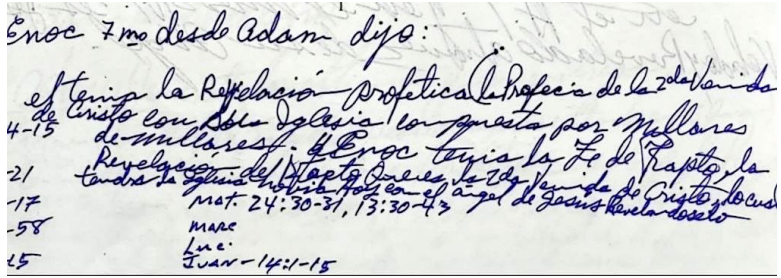 Enoc 7mo desde Adam dijo:
el tenia la Revelación profetica (la Profecia de la 2da Venida
de Cristo con su Iglesia compuesta por Millares
4-15 de millares. y Enoc tenia la Fe de Rapto, la
-21 Revelación del Rapto que es la 2da Venida de Cristo, lo cual
tendra la Iglesia novia hoy con el angel de Jesus Revelandoselo
-17 Mat. 24:30-31, 13:30-43
-58 Marc
Luc.
15 Juan - 14:1-15